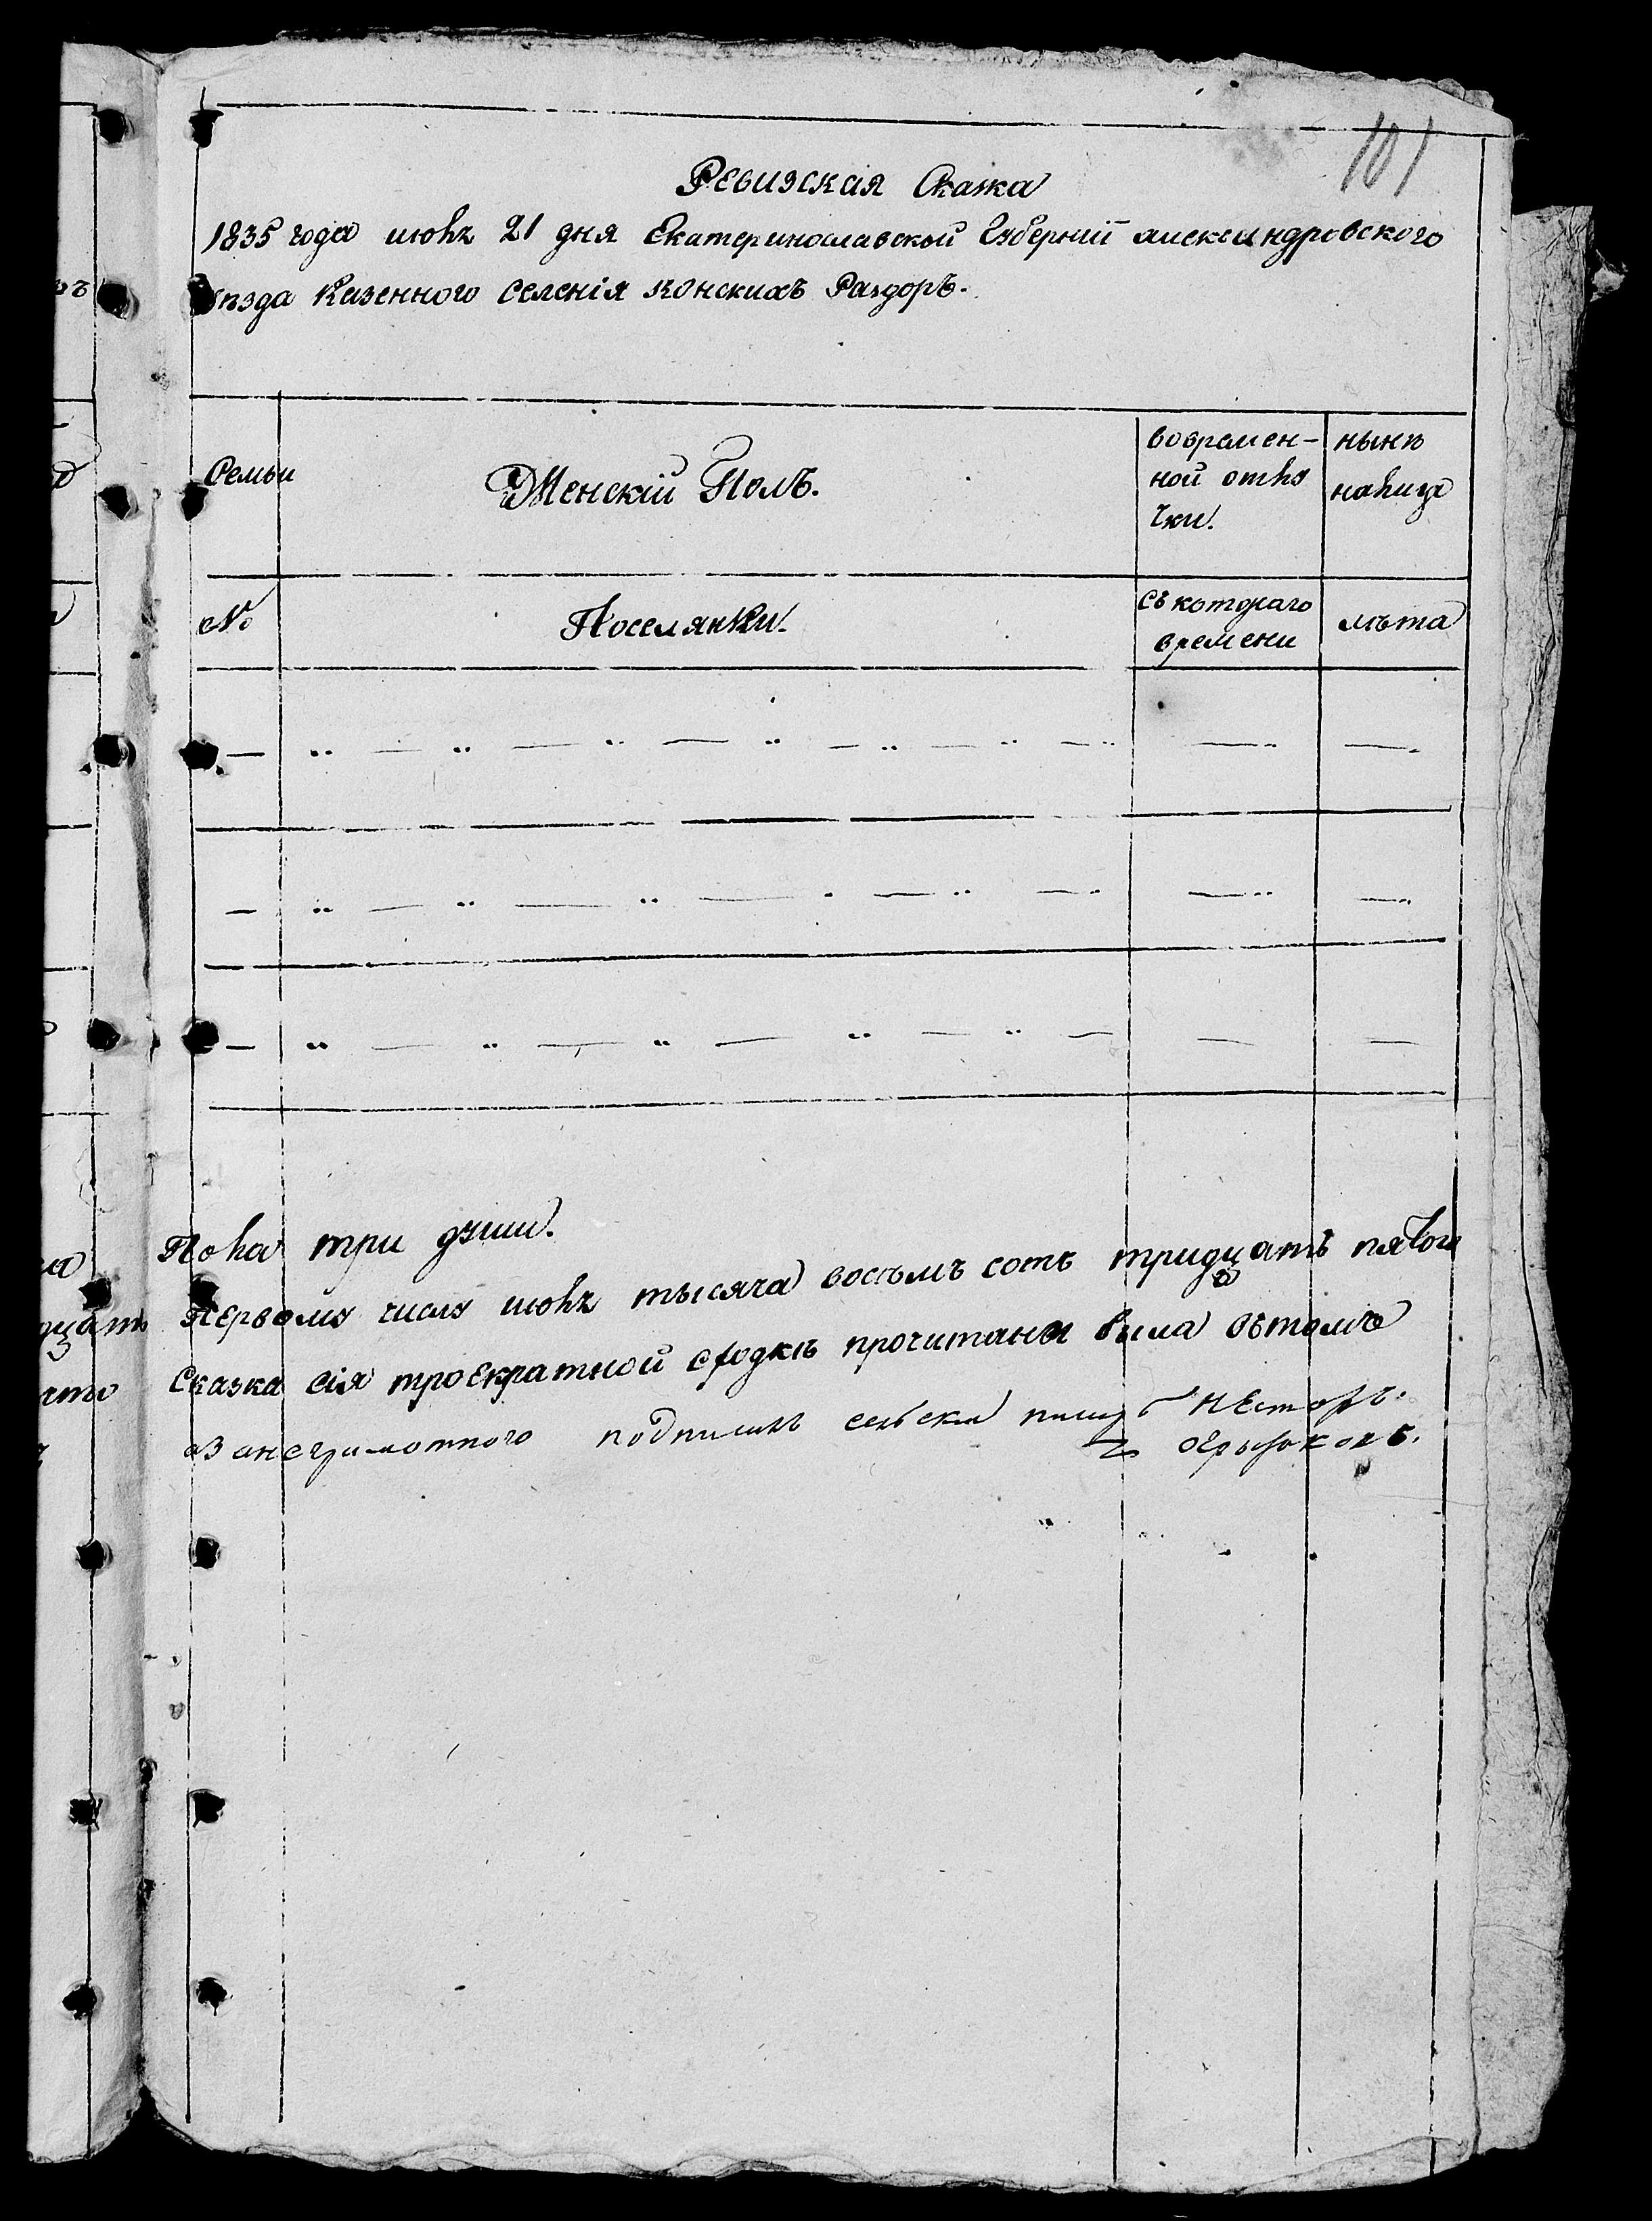 101
Ревизская Сказка
1835 года июля 21 дня Екатеринославской Губерніи александровского
уѣзда Казенного селенія конскихъ Раздоръ.
Семьи
Женскій Полъ.
вовремен-
ной отлу
чки.
нынѣ
налицо
№
Поселянки.
съ котораго
времени
лѣта
Пола три души.
Первому числу июля тысяча восемъ сотъ тридцать
Сказка сія троекратной прочитана была втомъ
подписалъ Несторъ